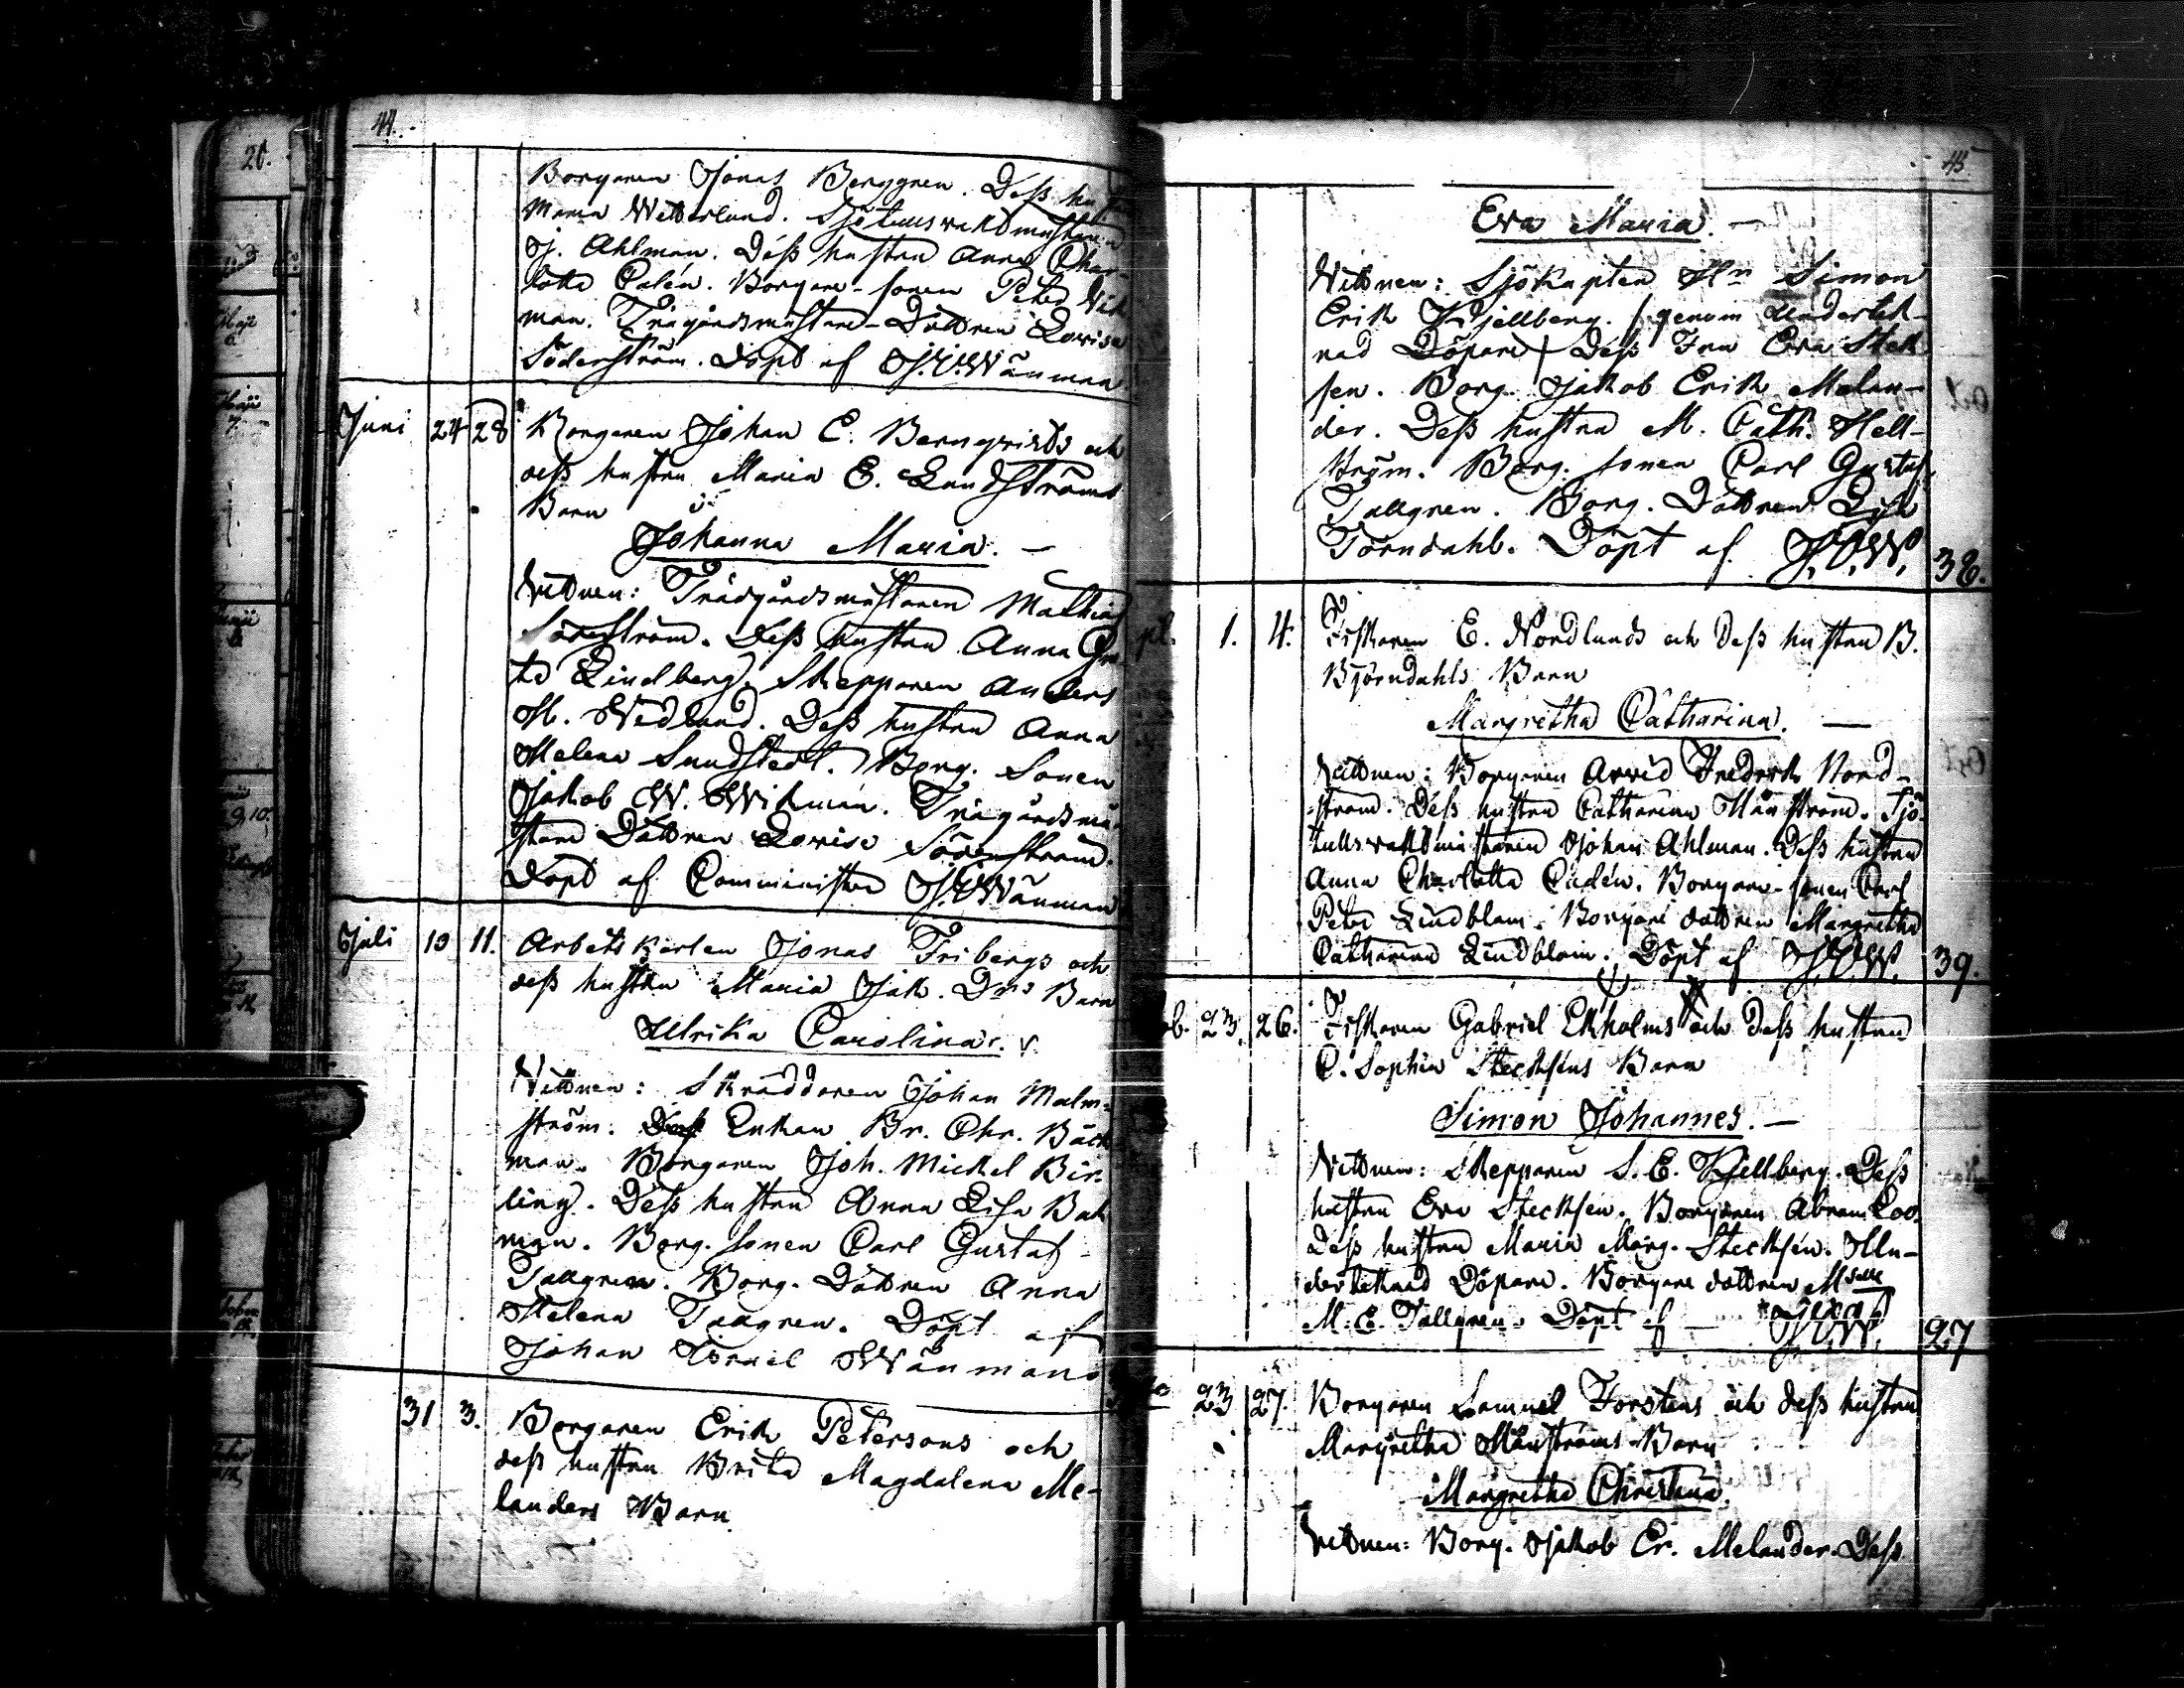 44.
Borgaren Jonas Berggren. Dess hustru
Maria Wetterlund. Sjötullsvaktmästaren
J. Ahlman. Dess hustru Anna Char-
lotta Calén. Borgare-sonen Peter Wik
man. Trägårdsmästare-Dottren Lovisa
Söderström. Döpt af J. I. Wänman
Juni 24 28 Borgaren Johan C. Bernqvists och
dess hustru Maria E. Lundströms
Barn
Johanna Maria. —
Vittnen: Trädgårdsmästaren Mathias
Söderström. Dess hustru Anna Gre-
ta Lindberg. Skepparen Anders
H. Wedlund. Dess hustru Anna
Helena Sundstedt. Borg. Sonen
Jakob W. Wikman. Trägårdsmä-
stare Dottren Lovisa Söderström.
Döpt af Comministre J. I. Wänman
Juli 10 11. Arbets karlen Jonas Fribergs och
dess hustru Maria Jak. Drs Barn
Ulrika Carolina.
Vittnen: Skräddaren Johan Malm-
ström. Enkan Br. Chr. Bäck
man. Borgaren Joh. Mickel Bir-
ling. Dess hustru Anna Lisa Bak
man. Borg. sonen Carl Gustaf
Tallgren. Borg. Dottren Anna
Helena Tallgren. Döpt af
Johan Israel Wänman
31 3. Borgaren Erik Petersons och
dess hustru Brita Magdalena Me-
landers Barn
45
Eva Maria. —
Vittnen: Sjökapten Hn Simon
Erik Kjellberg. (genom Underteck-
nad Döpare) Dess Fru Eva Steck
sen. Borg. Jakob Erik Melan-
der. Dess hustru M. Cath. Hell-
ström. Borg. sonen Carl Gustaf
Tallgren. Borg. Dottren Lisa
Törndahl. Döpt af J. I. W. 38.
1. 4. Fiskaren E. Nordlunds och Dess hustru B.
Björndahls Barn
Margretha Catharina. —
Vittnen: Borgaren Arvid Fredrik Nord-
ström. Dess hustru Catharina Månström. Sjö-
tullsvaktmästaren Johan Ahlman. Dess hustru
Anna Charlotta Calén. Borgare-sonen Carl
Peter Lindblom. Borgare dottren Margretha
Catharina Lindblom. Döpt af J. I. W. 39.
23. 26. Fiskaren Gabriel Ekholms och Dess hustru
C. Sophia Stecksens Barn
Simon Johannes. —
Vittnen: Skepparen S. E. Kjellberg. Dess
hustru Eva Stecksen. Borgaren Abram Loo.
Dess hustru Maria Marg. Stecksén. Un-
dertecknad Döpare. Borgare dottren Mselle
M: E. Tallgren. Döpt af — J. I. W. 27
23 27. Borgaren Samuel Forstens och dess hustru
Margretha Månströms Barn
Margretha Christina.
Vittnen: Borg. Jakob Er. Melander. Dess